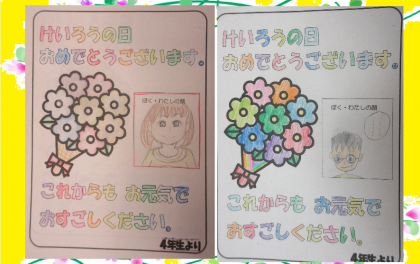 けいろうの日
おめでとうございます。
ぼく・わたしの顔
これからも お元気で
おすごしください。
4年生より
けいろうの日
おめでとうございます。
ぼく・わたしの顔
これからも お元気で
おすごしください。
4年生より